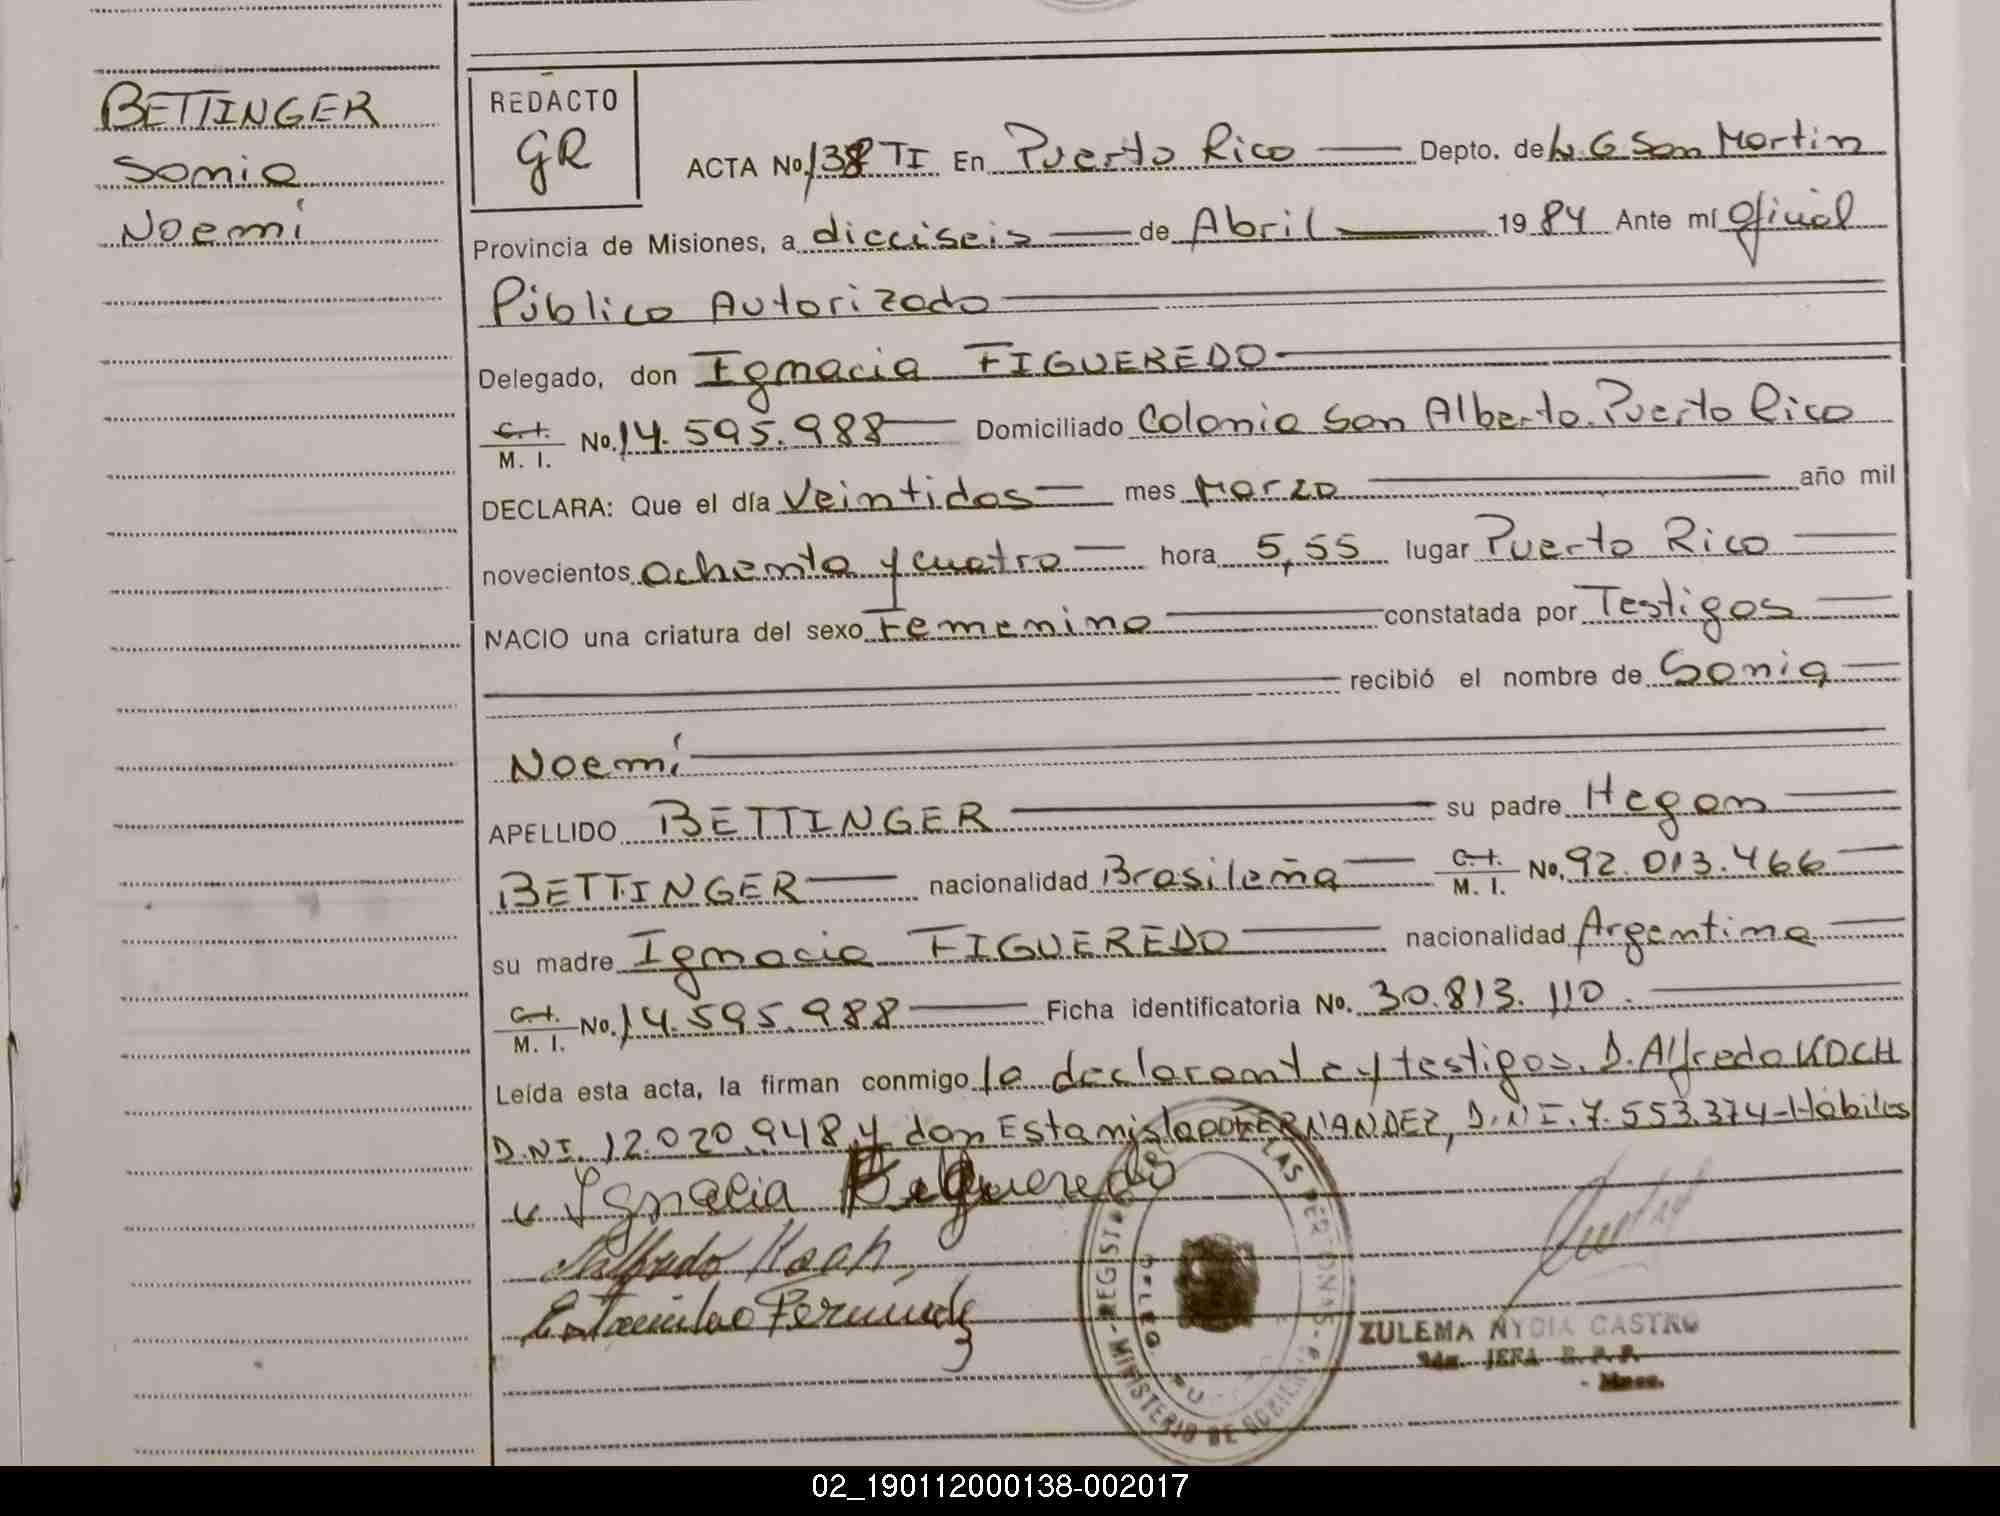 BETTINGER
Sonia
Noemí
REDACTO
GR
ACTA No. 138 TI En Puerto Rico Depto. de L. G San Martin
Provincia de Misiones, a dieciseis de Abril 1984 Ante mí Oficial
Público Autorizado
Delegado, don Ignacia FIGUEREDO
C. I. M. I. No. 14.595.988 Domiciliado Colonia San Alberto. Puerto Rico
DECLARA: Que el día Veintidos mes Marzo año mil
novecientos ochenta y cuatro hora 5,55 lugar Puerto Rico
NACIO una criatura del sexo Femenino constatada por Testigos
recibió el nombre de Sonia
Noemí
APELLIDO BETTINGER su padre Hegon
BETTINGER nacionalidad Brasileña C. I. M. I. No. 92.013.466
su madre Ignacia FIGUEREDO nacionalidad Argentina
C. I. M. I. No. 14.595.988 Ficha identificatoria No. 30.813.110.
Leída esta acta, la firman conmigo la declarante y testigos. D. Alfredo KOCH
D.NI. 12.020.948 y don Estanislao FERNANDEZ, D.NI. 7.553.374-Habiles
Ignacia Figueredo
Alfredo Koch
Estanislao Fernandez
REGISTRO LAS PERSONAS
MINISTERIO DE GOBIERNO
ZULEMA NYDIA CASTRO
JEFA R. P. P.
Mnes.
02_190112000138-002017